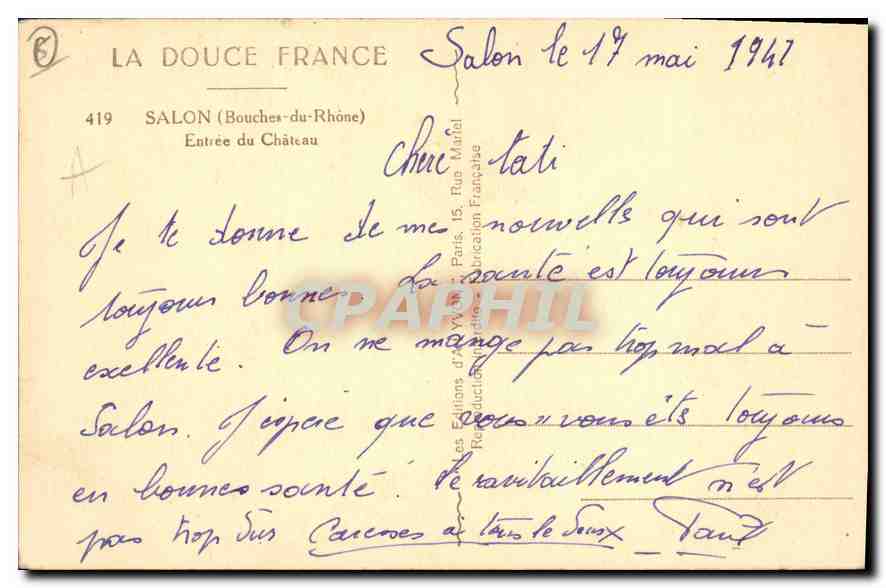 8
LA DOUCE FRANCE
Salon le 17 mai 1941
419 SALON (Bouches-du-Rhône)
Entrée du Château
A
Cheré tati
Je te donne de mes nouvells qui sont
toujours bonnes La santé est toujours
exellente. On ne mange pas trop mal à
Salon. J'éspére que vous vous éts toujours
en bonnes santé. Le ravitaillement n'est
pas trop dur Caresses a tous le deux Paul
Les Editions d'Art YVON, Paris, 15, Rue Martel
Reproduction interdite - Fabrication Française
CPAPHIL